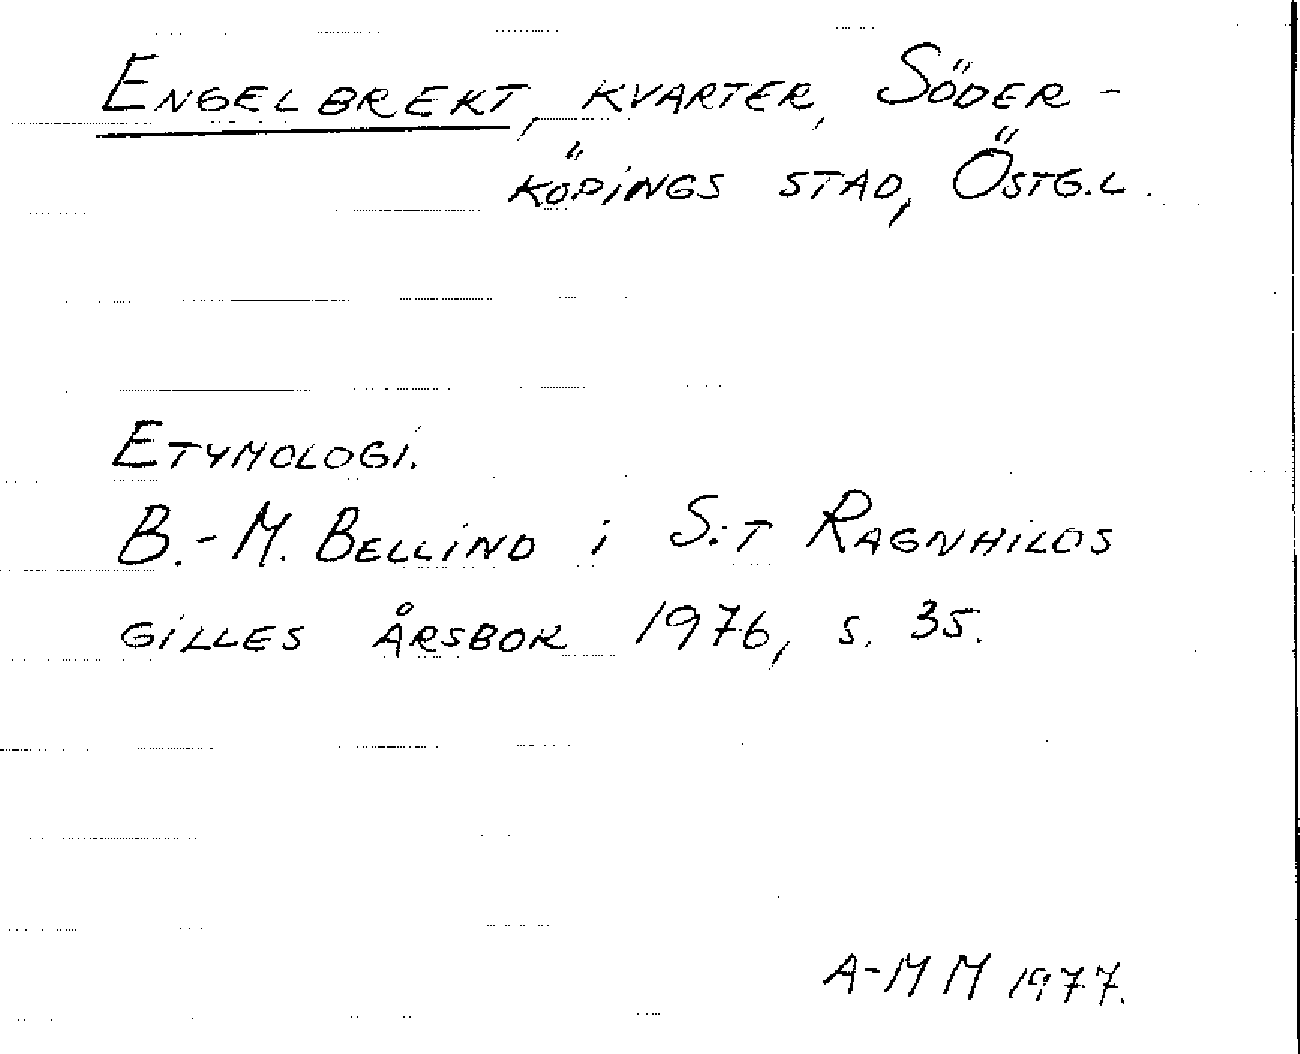 ENGELBREKT, KVARTER, SÖDER-
KÖPINGS STAD, ÖSTG.L.
ETYMOLOGI.
B.-M. BELLIND i S:T RAGNHILDS
GILLES ÅRSBOK 1976, s. 35.
A-MM 1977.